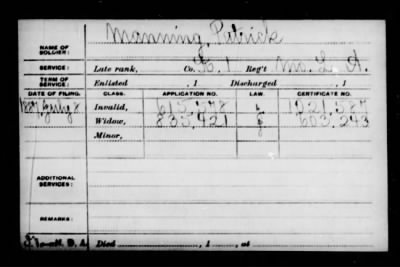 Manning, Patrick
NAME OF SOLDIER:
SERVICE: Late rank, Co. 1 Reg't Mo. L. A.
TERM OF SERVICE: Enlisted , 1 Discharged , 1
DATE OF FILING. CLASS. APPLICATION NO. LAW. CERTIFICATE NO.
1887, July 8 Invalid, 615,278 1,221,587
Widow, 835,421 603,243
Minor,
ADDITIONAL SERVICES:
REMARKS:
Died , 1 , at